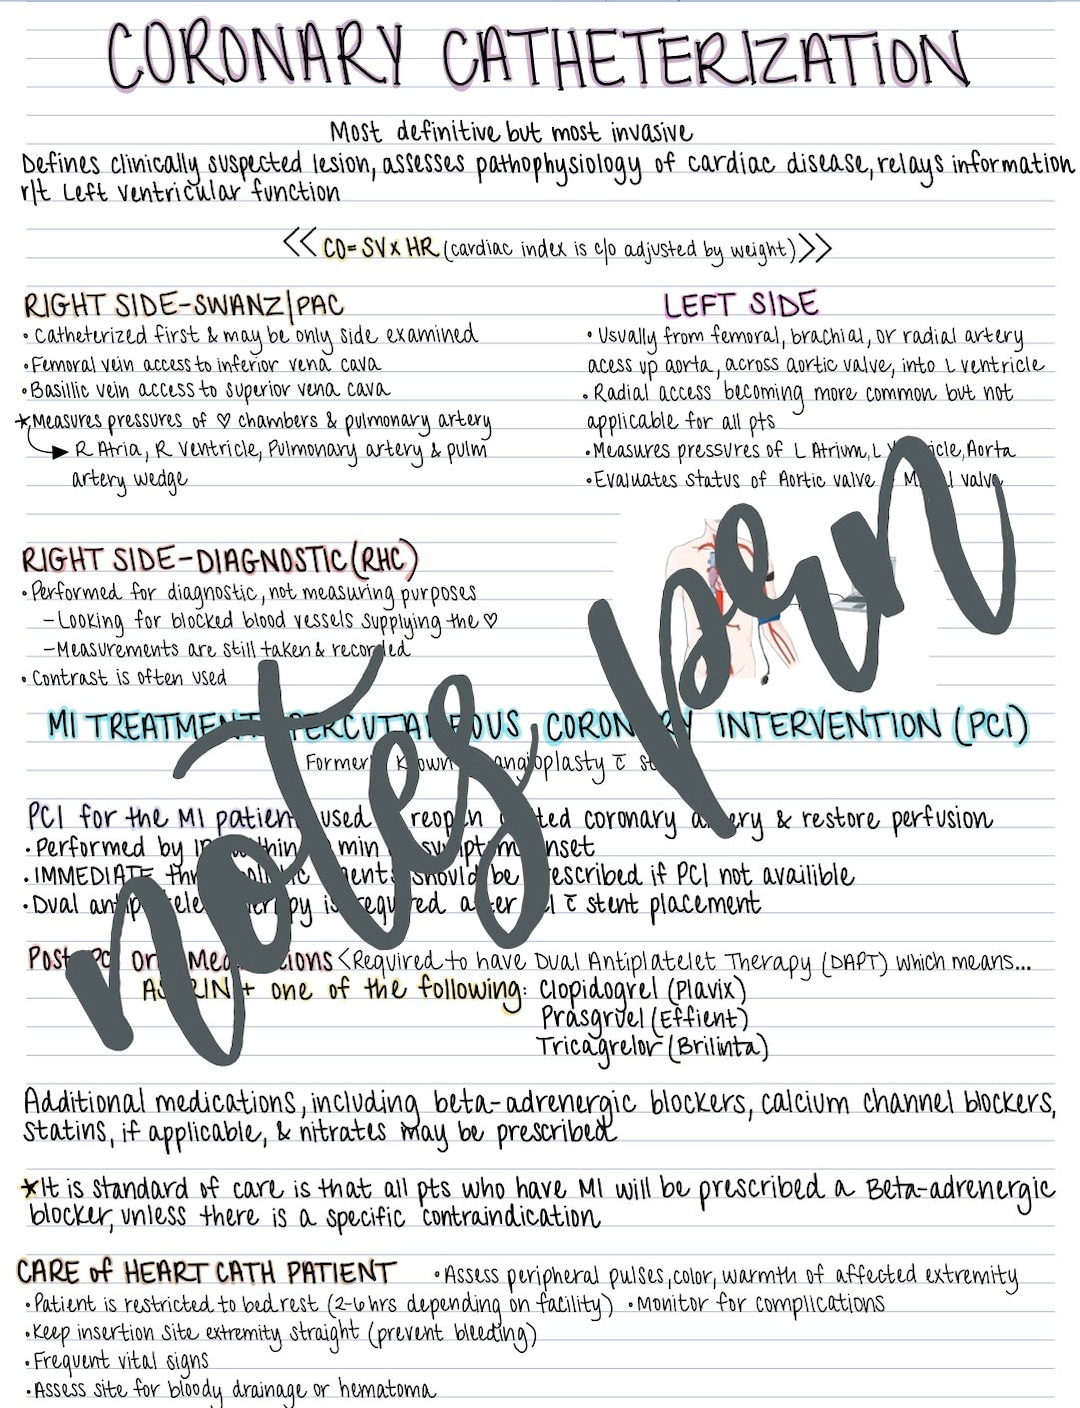 CORONARY CATHETERIZATION
Most definitive but most invasive
Defines clinically suspected lesion, assesses pathophysiology of cardiac disease, relays information
r/t Left ventricular function
<< CO= SV x HR (cardiac index is c/o adjusted by weight) >>
RIGHT SIDE-SWANZ/PAC
• Catheterized first & may be only side examined
• Femoral vein access to inferior vena cava
• Basillic vein access to superior vena cava
★Measures pressures of ♡ chambers & pulmonary artery
R Atria, R Ventricle, Pulmonary artery & pulm
artery wedge
LEFT SIDE
• Usually from femoral, brachial, or radial artery
acess up aorta, across aortic valve, into L ventricle
• Radial access becoming more common but not
applicable for all pts
• Measures pressures of L Atrium, L Aorta
• Evaluates status of Aortic valve valve
RIGHT SIDE-DIAGNOSTIC (RHC)
• Performed for diagnostic, not measuring purposes
- Looking for blocked blood vessels supplying the ♡
- Measurements are still taken & recorded
• Contrast is often used
notes pen
MI TREATMENT PERCUTANEOUS CORONARY INTERVENTION (PCI)
Formerly known angioplasty c̄
PCI for the MI patient used reopen coronary artery & restore perfusion
• Performed by min symptom onset
• IMMEDIATE should be prescribed if PCI not availible
• Dual antiplatelet therapy is required after c̄ stent placement
Post PCI Oral Medications <Required to have Dual Antiplatelet Therapy (DAPT) which means...
ASPIRIN + one of the following: Clopidogrel (Plavix)
Prasgruel (Effient)
Tricagrelor (Brilinta)
Additional medications, including beta-adrenergic blockers, calcium channel blockers,
statins, if applicable, & nitrates may be prescribed
★It is standard of care is that all pts who have MI will be prescribed a Beta-adrenergic
blocker, unless there is a specific contraindication
CARE of HEART CATH PATIENT • Assess peripheral pulses, color, warmth of affected extremity
• Patient is restricted to bedrest (2-6 hrs depending on facility) • Monitor for complications
• Keep insertion site extremity straight (prevent bleeding)
• Frequent vital signs
• Assess site for bloody drainage or hematoma